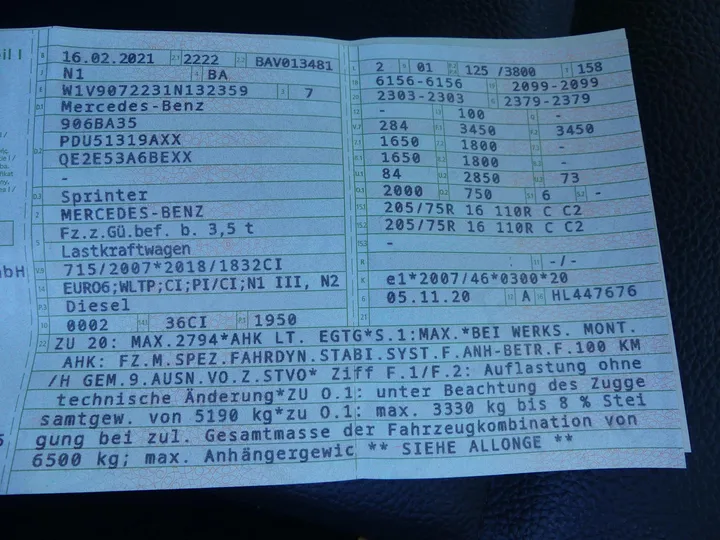 16.02.2021 2222 BAV013481
N1 BA
W1V9072231N132359 7
Mercedes-Benz
906BA35
PDU51319AXX
QE2E53A6BEXX
-
Sprinter
MERCEDES-BENZ
Fz.z.Gü.bef. b. 3,5 t
Lastkraftwagen
715/2007*2018/1832CI
EURO6;WLTP;CI;PI/CI;N1 III, N2
Diesel
0002 36CI 1950
2 01 125 /3800 158
6156-6156 2099-2099
2303-2303 2379-2379
- 100 -
284 3450 3450
1650 1800 -
1650 1800 -
84 2850 73
2000 750 6 -
205/75R 16 110R C C2
205/75R 16 110R C C2
-
-/-
e1*2007/46*0300*20
05.11.20 A HL447676
ZU 20: MAX.2794*AHK LT. EGTG*S.1:MAX.*BEI WERKS. MONT.
AHK: FZ.M.SPEZ.FAHRDYN.STABI.SYST.F.ANH-BETR.F.100 KM
/H GEM.9.AUSN.VO.Z.STVO* Ziff F.1/F.2: Auflastung ohne
technische Änderung*ZU O.1: unter Beachtung des Zugge
samtgew. von 5190 kg*zu O.1: max. 3330 kg bis 8 % Stei
gung bei zul. Gesamtmasse der Fahrzeugkombination von
6500 kg; max. Anhängergewic ** SIEHE ALLONGE **